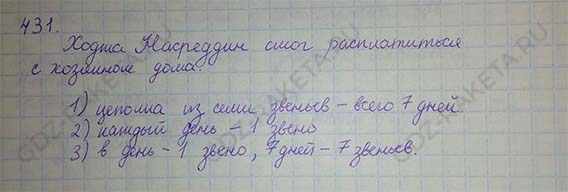 431.
Ходжа Насреддин смог расплатиться
с хозяином дома.
1) цепочка из семи звеньев – всего 7 дней.
2) каждый день – 1 звено
3) в день – 1 звено, 7 дней – 7 звеньев.
GDZ-RAKETA.RU